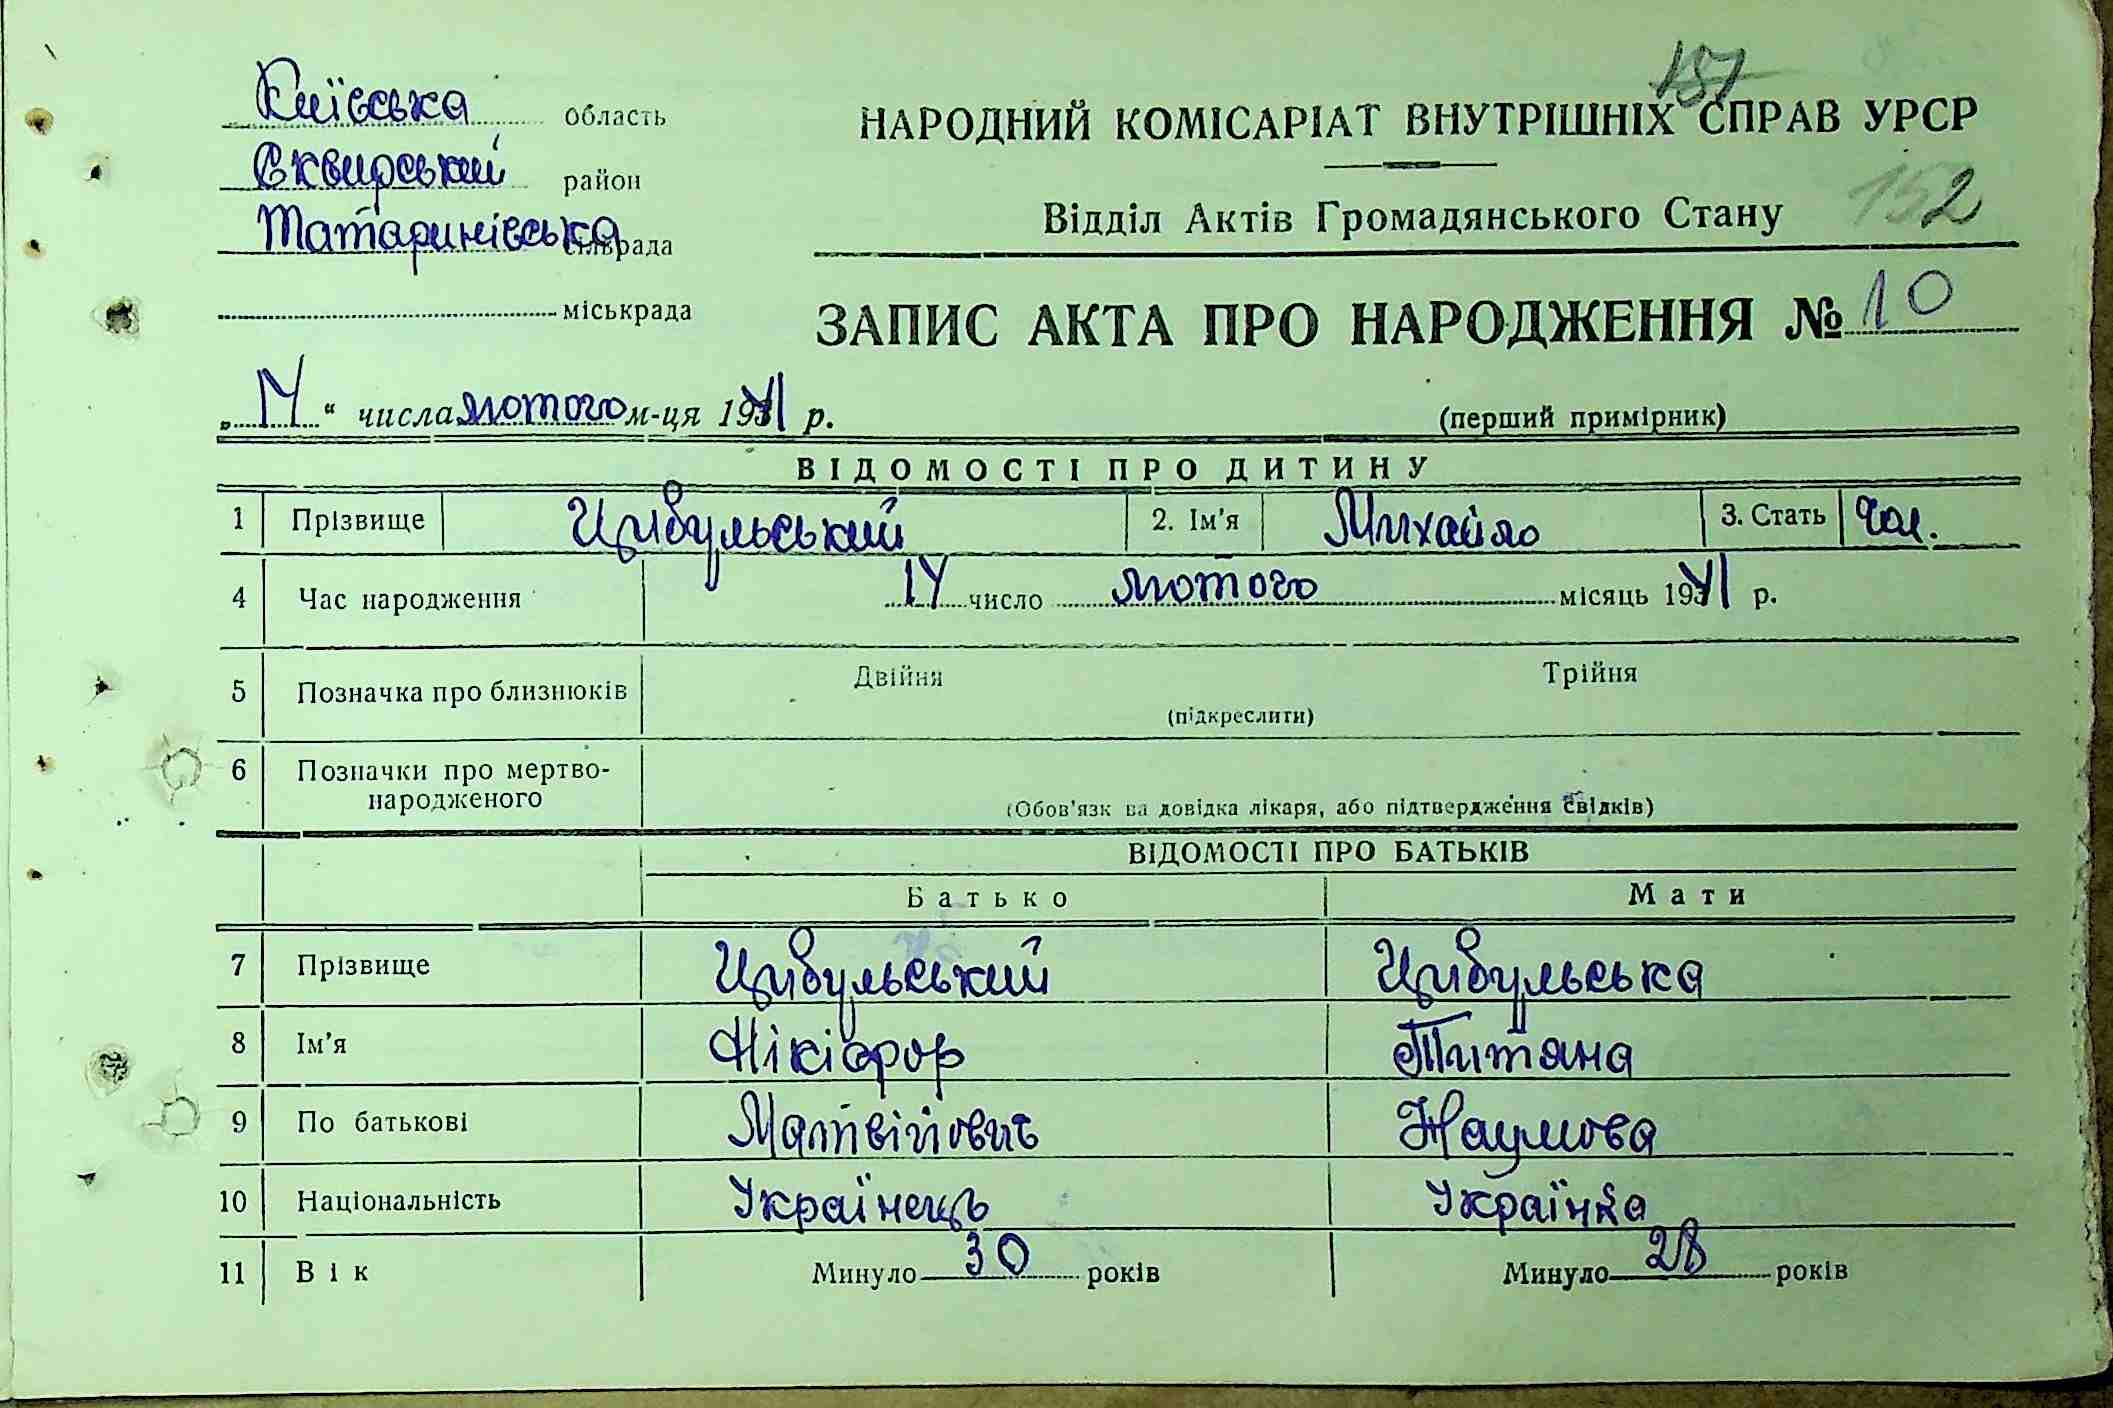 Київська область
Сквирський район
Татаринівська сільрада
міськрада
157
НАРОДНИЙ КОМІСАРІАТ ВНУТРІШНІХ СПРАВ УРСР
Відділ Актів Громадянського Стану
152
ЗАПИС АКТА ПРО НАРОДЖЕННЯ № 10
„14“ числа лютого м-ця 1941 р.
(перший примірник)
ВІДОМОСТІ ПРО ДИТИНУ
1 Прізвище Цибульський 2. Ім'я Михайло 3. Стать чол.
4 Час народження 14 число лютого місяць 1941 р.
5 Позначка про близнюків Двійня Трійня
(підкреслити)
6 Позначки про мертво-
народженого
(Обов'язкова довідка лікаря, або підтвердження свідків)
ВІДОМОСТІ ПРО БАТЬКІВ
Батько Мати
7 Прізвище Цибульський Цибульська
8 Ім'я Нікіфор Титяна
9 По батькові Матвійовичъ Наумова
10 Національність Українець Українка
11 Вік Минуло 30 років Минуло 28 років